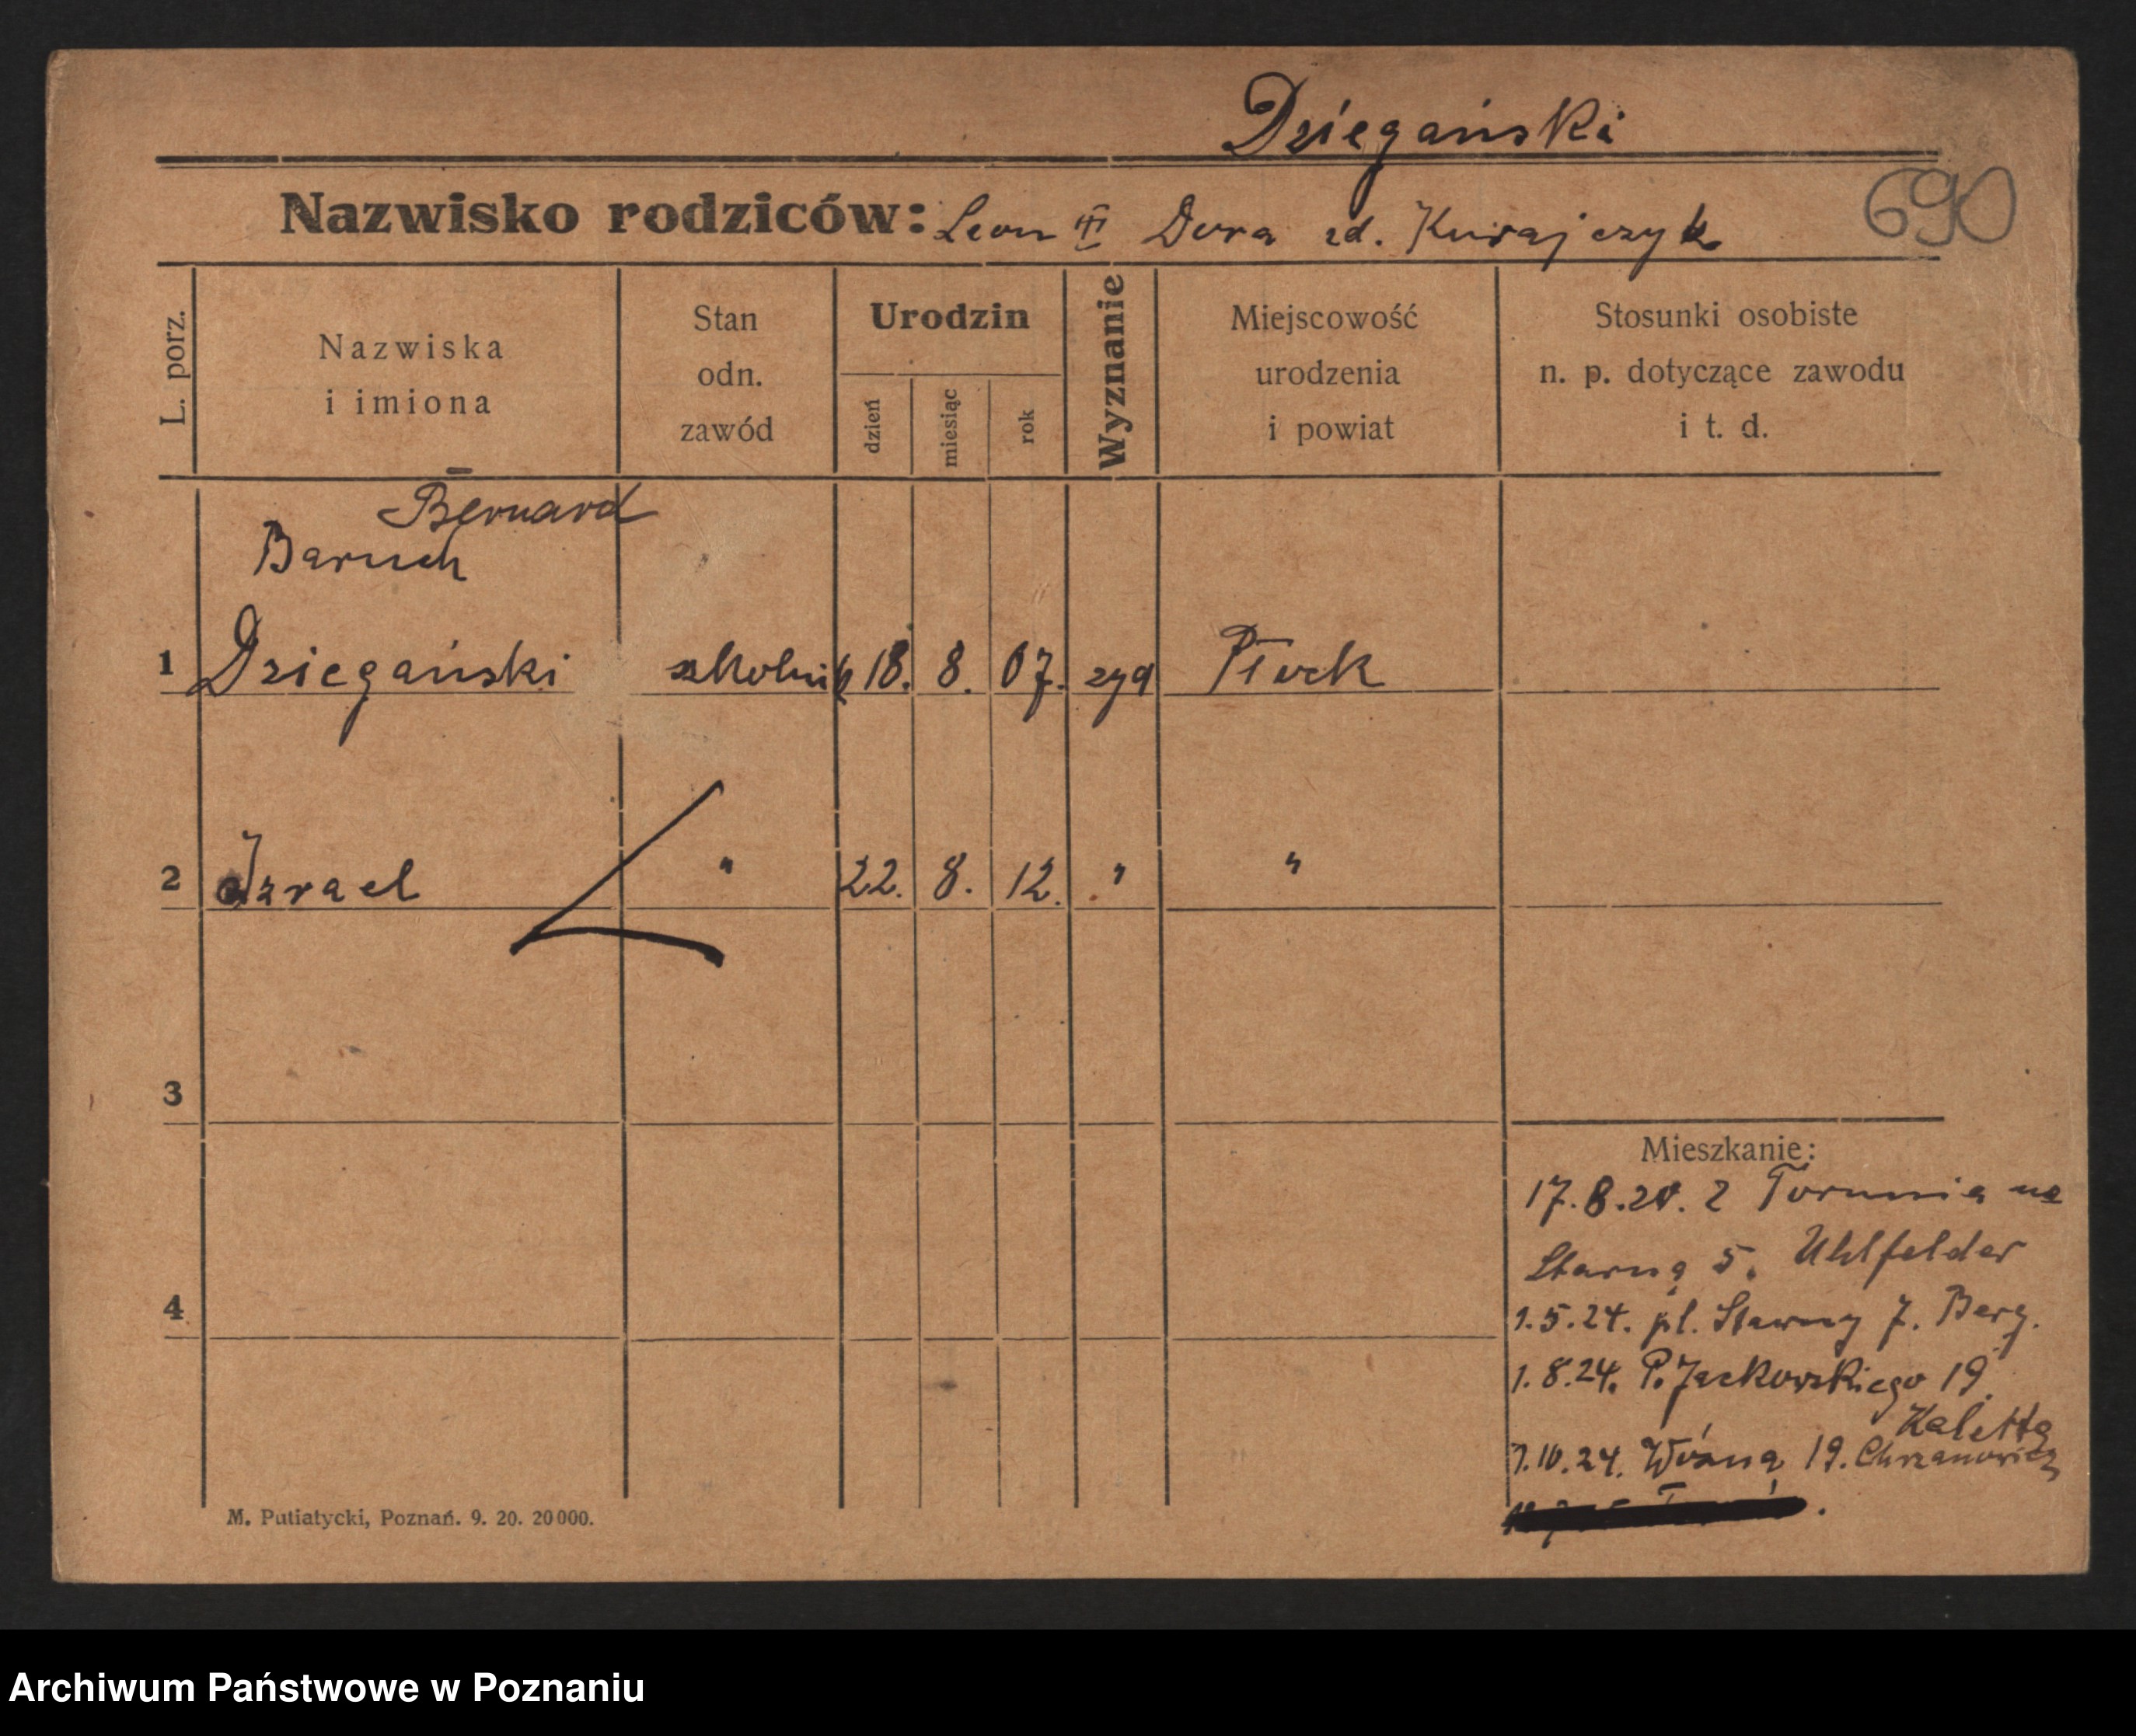 Dziegański
Nazwisko rodziców: Leon i Dora zd. Kurajczyk
690
L. porz.
Nazwiska
i imiona
Stan
odn.
zawód
Urodzin
dzień
miesiąc
rok
Wyznanie
Miejscowość
urodzenia
i powiat
Stosunki osobiste
n. p. dotyczące zawodu
i t. d.
Bernard
Baruch
1 Dziegański szkolnik 18. 8. 07. zyd Płock
2 Izrael " 22. 8. 12. " "
3
4
Mieszkanie:
17.8.20. z Torunia na
Starną 5. Uhlfelder
1.5.24. pl. Stawny 7. Berg.
1.8.24. P. Jackowskiego 19.
Kaletta
1.10.24. Wóźna 19. Chrzanowicz
M. Putiatycki, Poznań. 9. 20. 20000.
Archiwum Państwowe w Poznaniu